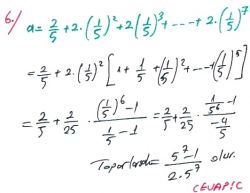 6.) a = 2/5 + 2·(1/5)² + 2(1/5)³ + ---- + 2·(1/5)⁷
= 2/5 + 2·(1/5)²[1 + 1/5 + (1/5)² + --- + (1/5)⁵]
= 2/5 + 2/25 · ((1/5)⁶ - 1)/(1/5 - 1) = 2/5 + 2/25 · (1/5⁶ - 1)/(-4/5)
Toparlarsak = (5⁷ - 1)/(2·5⁷) olur.
CEVAP: C